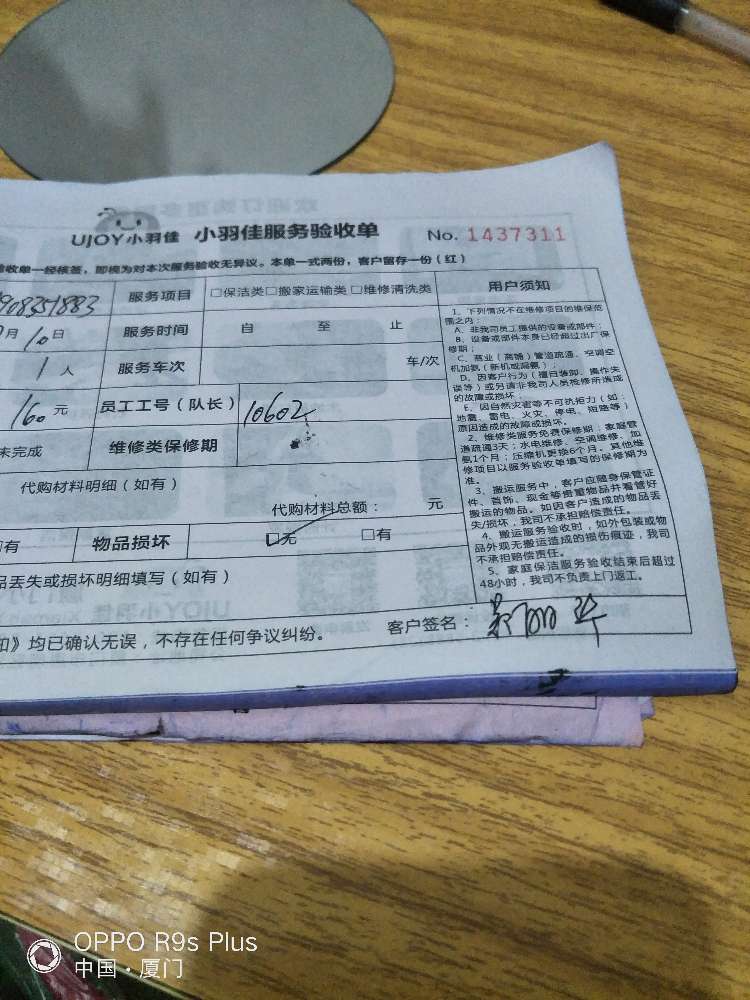 UJOY小羽佳 小羽佳服务验收单 No. 1437311
验收单一经核签,即视为对本次服务验收无异议。本单一式两份,客户留存一份(红)
908351883 服务项目 □保洁类□搬家运输类□维修清洗类 用户须知
月10日 服务时间 自 至 止
1人 服务车次 车/次
160元 员工工号(队长) 10602
未完成 维修类保修期
代购材料明细(如有)
代购材料总额: 元
□有 物品损坏 ☑无 □有
品丢失或损坏明细填写(如有)
知》均已确认无误,不存在任何争议纠纷。 客户签名:
1、下列情况不在维修项目的维保范
围之内:
A、非我司员工提供的设备或部件;
B、设备或部件本身已经超过出厂保
修期;
C、商业(商铺)管道疏通、空调空
机加氨(新机或漏氨);
D、因客户行为(擅自装卸、操作失
误等)或另请非我司人员检修所造成
的故障或损坏;
E、因自然灾害等不可抗拒力(如:
地震、雷电、火灾、停电、短路等)
原因造成的故障或损坏。
2、维修类服务免费保修期:家庭管
道疏通3天;水电维修、空调维修、加
氨1个月;压缩机更换6个月。其他维
修项目以服务验收单填写的保修期为
准。
3、搬运服务中,客户应随身保管证
件、首饰、现金等贵重物品并看管好
搬运的物品。如因客户造成的物品丢
失/损坏,我司不承担赔偿责任。
4、搬运服务验收时,如外包装或物
品外观无搬运造成的损伤痕迹,我司
不承担赔偿责任。
5、家庭保洁服务验收结束后超过
48小时,我司不负责上门返工。
OPPO R9s Plus
中国·厦门